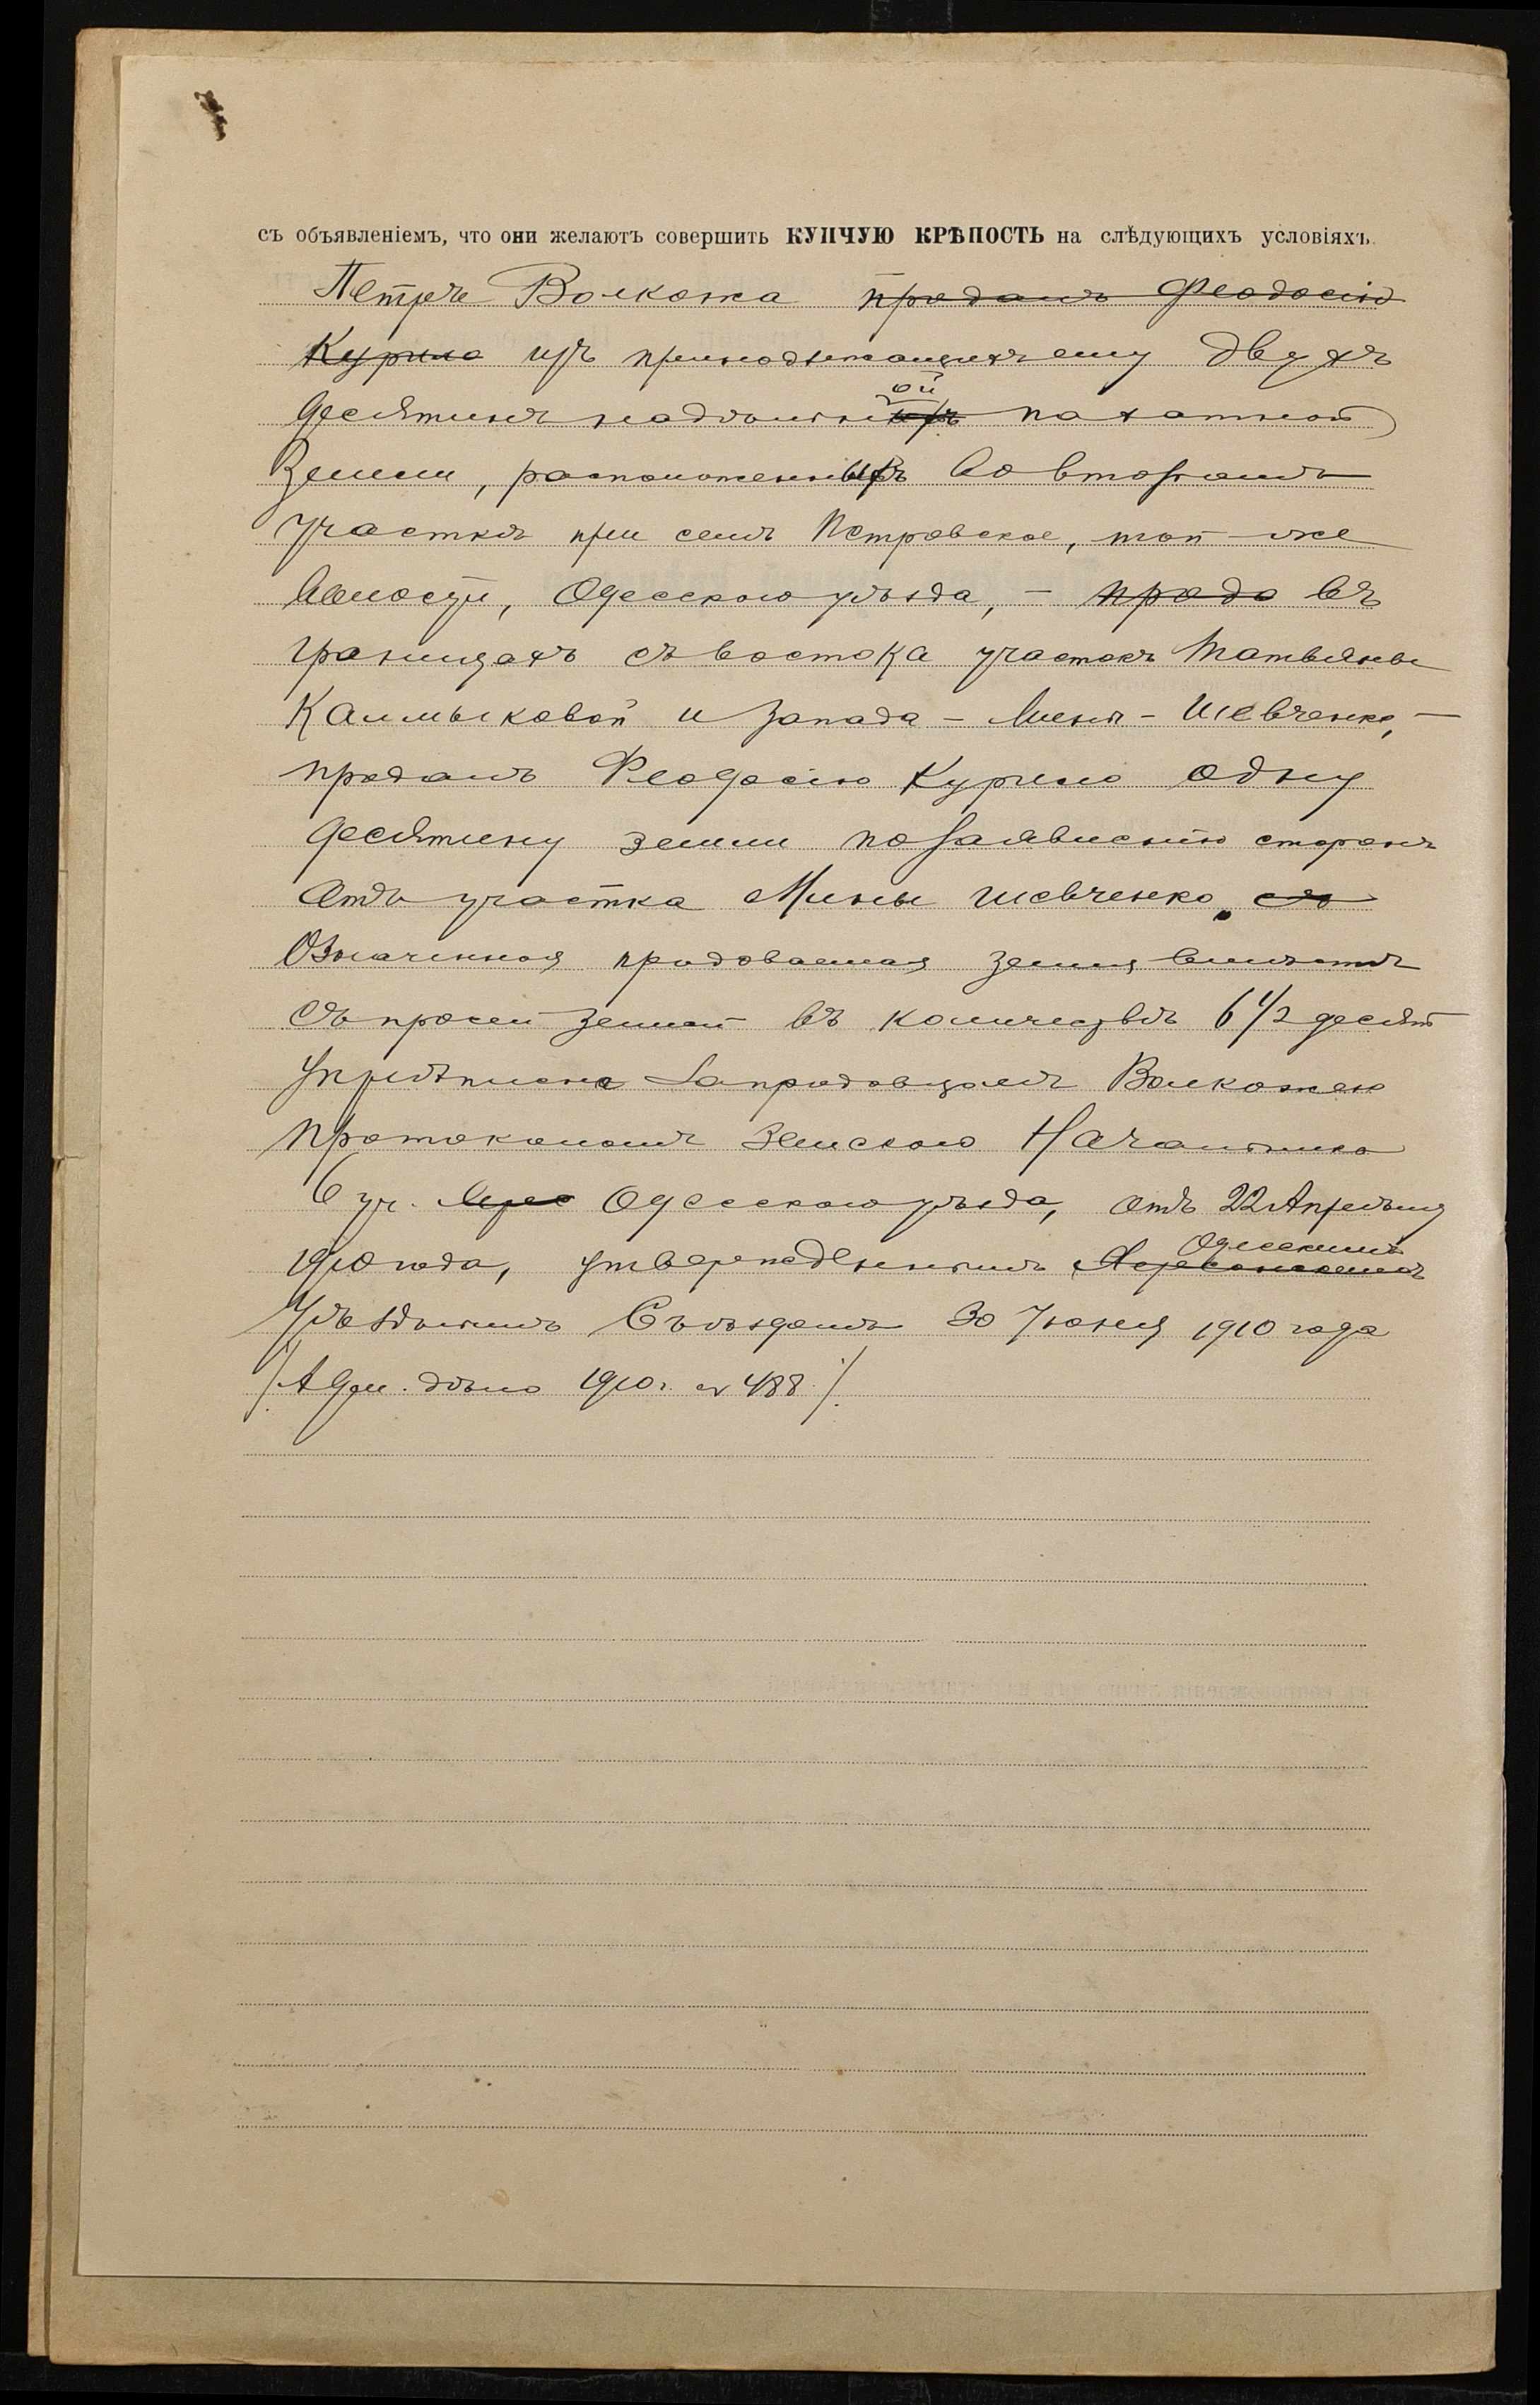 съ объявленіемъ, что они желаютъ совершить КУПЧУЮ КРѢПОСТЬ на слѣдующихъ условіяхъ.
Петръ Волкожа продалъ Феодосію
Курило изъ принадлежащихъ ему двухъ
ой
десятинъ надѣльныхъ пахатной
земли, расположенныхъ во второмъ
участкѣ при селѣ Петровское, той-же
волости, Одесскаго уѣзда, – прода въ
границахъ съ востока участокъ Татьяны
Калмыковой и запада – Мины – Шевченко, –
продалъ Феодосію Курило одну
десятину земли по заявленію сторонъ
отъ участка Мины Шевченко. съ
Означенная продоваемая земля вмѣстѣ
съ прочей землей въ количествѣ 6 1/2 десят
укрѣплена за продавцемъ Волкожею
протоколомъ Земскаго Начальника
6 уч. Одесскаго уѣзда, отъ 22 Апрѣля
Одесскимъ
1910 года, утвержденнымъ
Уѣзднымъ Съѣздомъ 30 Іюня 1910 года
/. Адм. дѣло 1910 г. № 488 ./